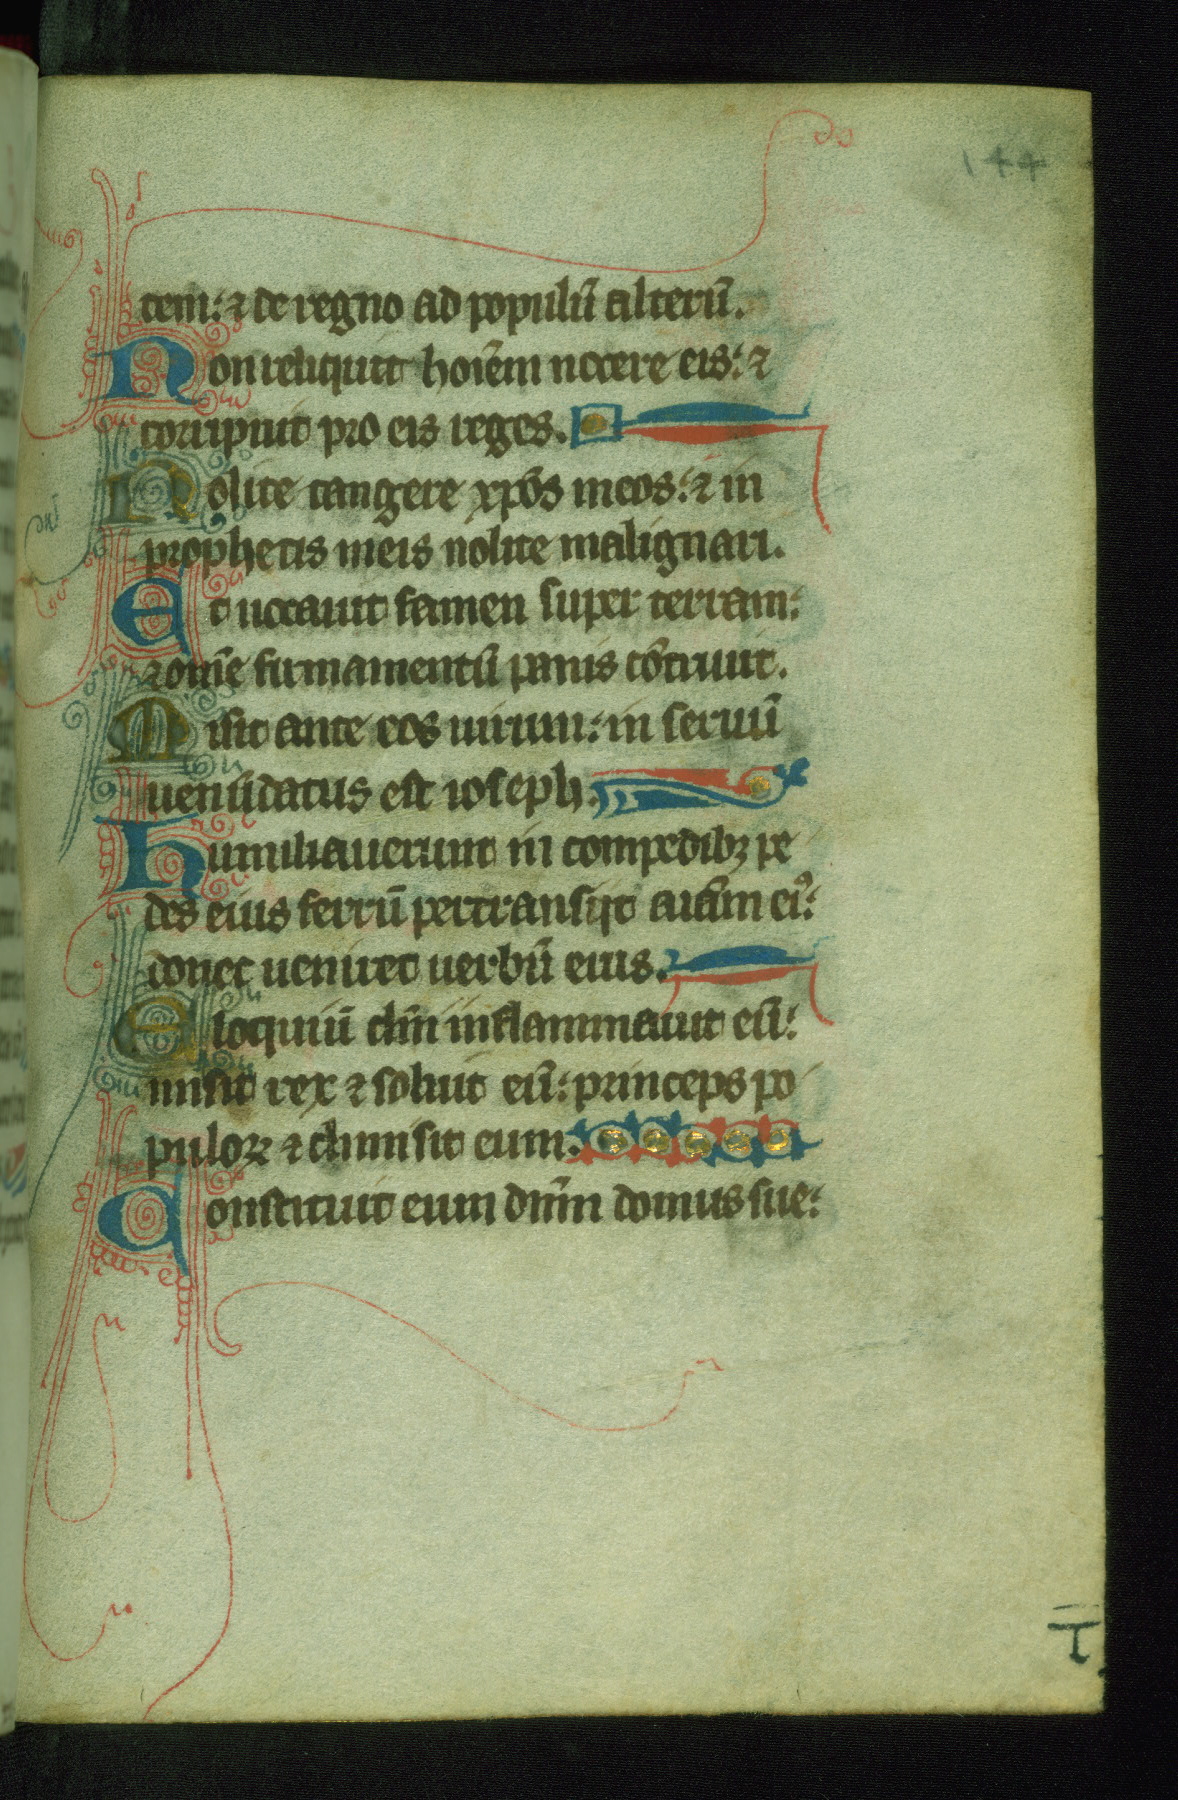 144
tem: ⁊ de regno ad populū alterū.
Non reliquit hoīem nocere eis: ⁊
corripuit pro eis reges.
Nolite tangere xp̄os meos: ⁊ in
prophetis meis nolite malignari.
Et uocauit famen super terram:
⁊ om̄e firmamentū panis cōtriuit.
Misit ante eos uirum: in seruū
uenūdatus est ioseph.
Humiliauerunt in compedibꝫ pe
des eius ferrū pertransijt aīam eiꝰ:
donec ueniret uerbū eius.
Eloquiū dn̄i inflammauit eū:
misit rex ⁊ soluit eū: princeps po
puloꝝ ⁊ dimisit eum.
Constituit eum dn̄m domus sue: